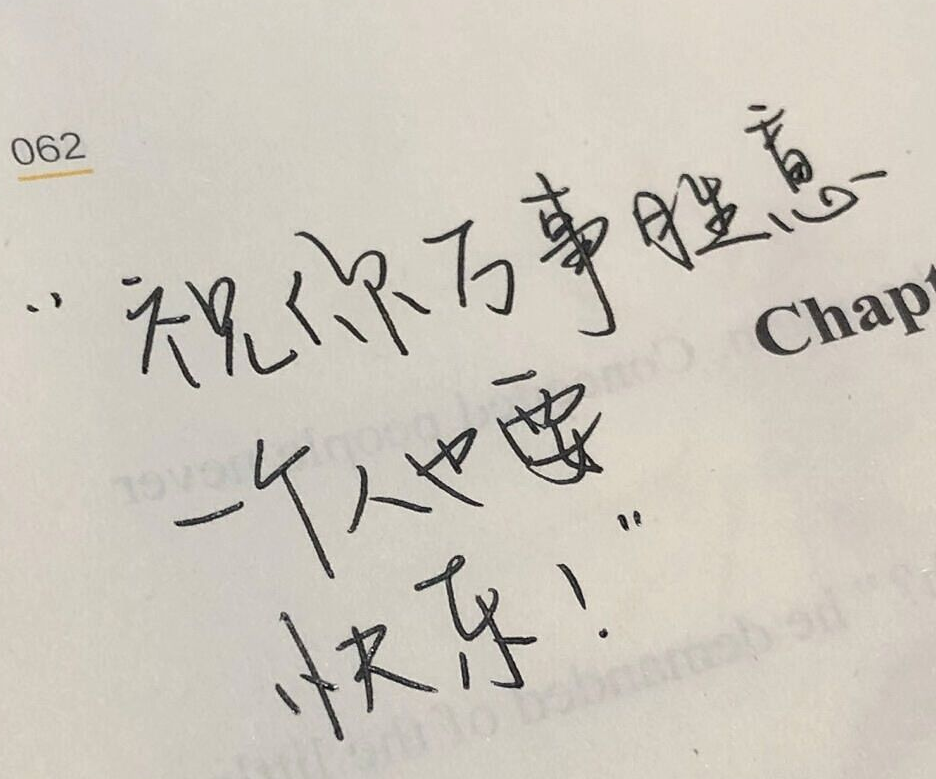 062
“祝你万事胜意
Chapt
一个人也要
快乐！”